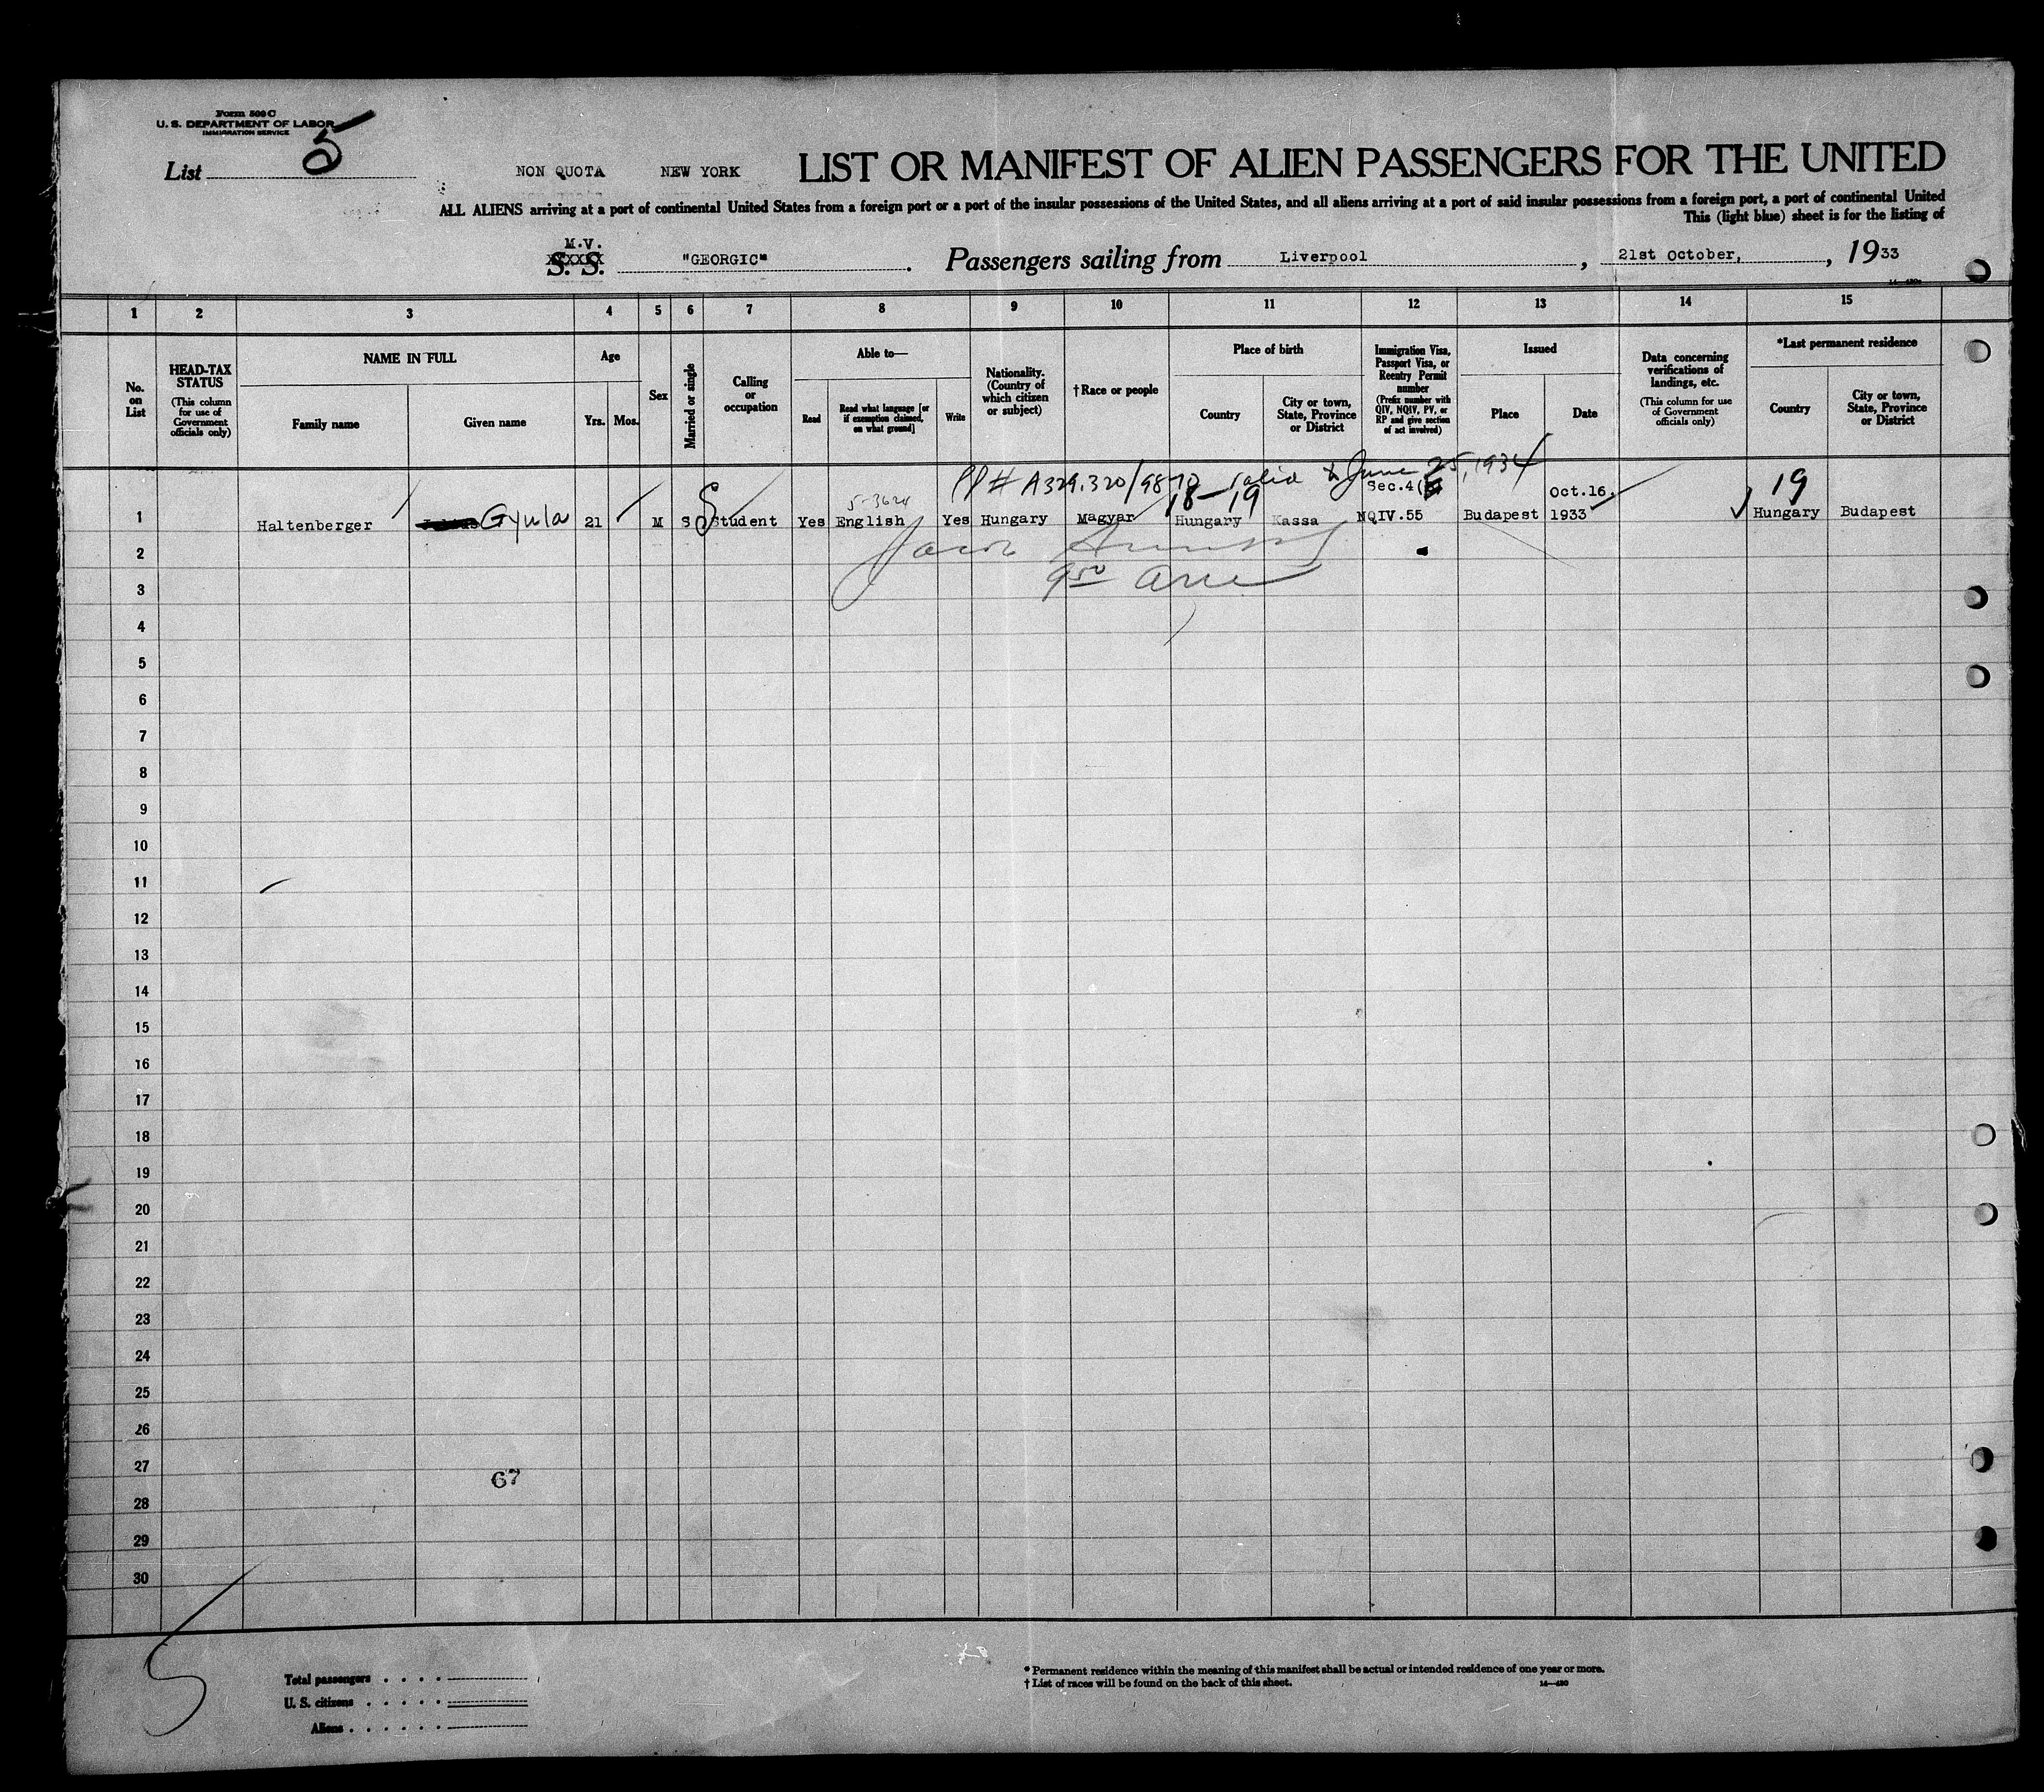 Form 500 C
U. S. DEPARTMENT OF LABOR
IMMIGRATION SERVICE
List 5
NON QUOTA NEW YORK LIST OR MANIFEST OF ALIEN PASSENGERS FOR THE UNITED
ALL ALIENS arriving at a port of continental United States from a foreign port or a port of the insular possessions of the United States, and all aliens arriving at a port of said insular possessions from a foreign port, a port of continental United
This (light blue) sheet is for the listing of
M.V.
S. S. "GEORGIC". Passengers sailing from Liverpool, 21st October, 1933
1 2 3 4 5 6 7 8 9 10 11 12 13 14 15
No. on List
HEAD-TAX STATUS
(This column for use of Government officials only)
NAME IN FULL
Family name
Given name
Age
Yrs.
Mos.
Sex
Married or single
Calling or occupation
Able to—
Read
Read what language [or if exemption claimed, on what ground]
Write
Nationality. (Country of which citizen or subject)
†Race or people
Place of birth
Country
City or town, State, Province or District
Immigration Visa, Passport Visa, or Reentry Permit number
(Prefix number with QIV, NQIV, PV, or RP and give section of act involved)
Issued
Place
Date
Data concerning verifications of landings, etc.
(This column for use of Government officials only)
*Last permanent residence
Country
City or town, State, Province or District
PP # A329.320/9870 valid to June 25, 1934
5-3624 18-19 Sec.4( Oct.16, 19
1 Haltenberger Gyula 21 M S Student Yes English Yes Hungary Magyar Hungary Kassa NQIV.55 Budapest 1933 Hungary Budapest
2 Jacob
3 950
4
5
6
7
8
9
10
11
12
13
14
15
16
17
18
19
20
21
22
23
24
25
26
27
67
28
29
30
5
Total passengers
U. S. citizens
Aliens
* Permanent residence within the meaning of this manifest shall be actual or intended residence of one year or more.
† List of races will be found on the back of this sheet.
14—480